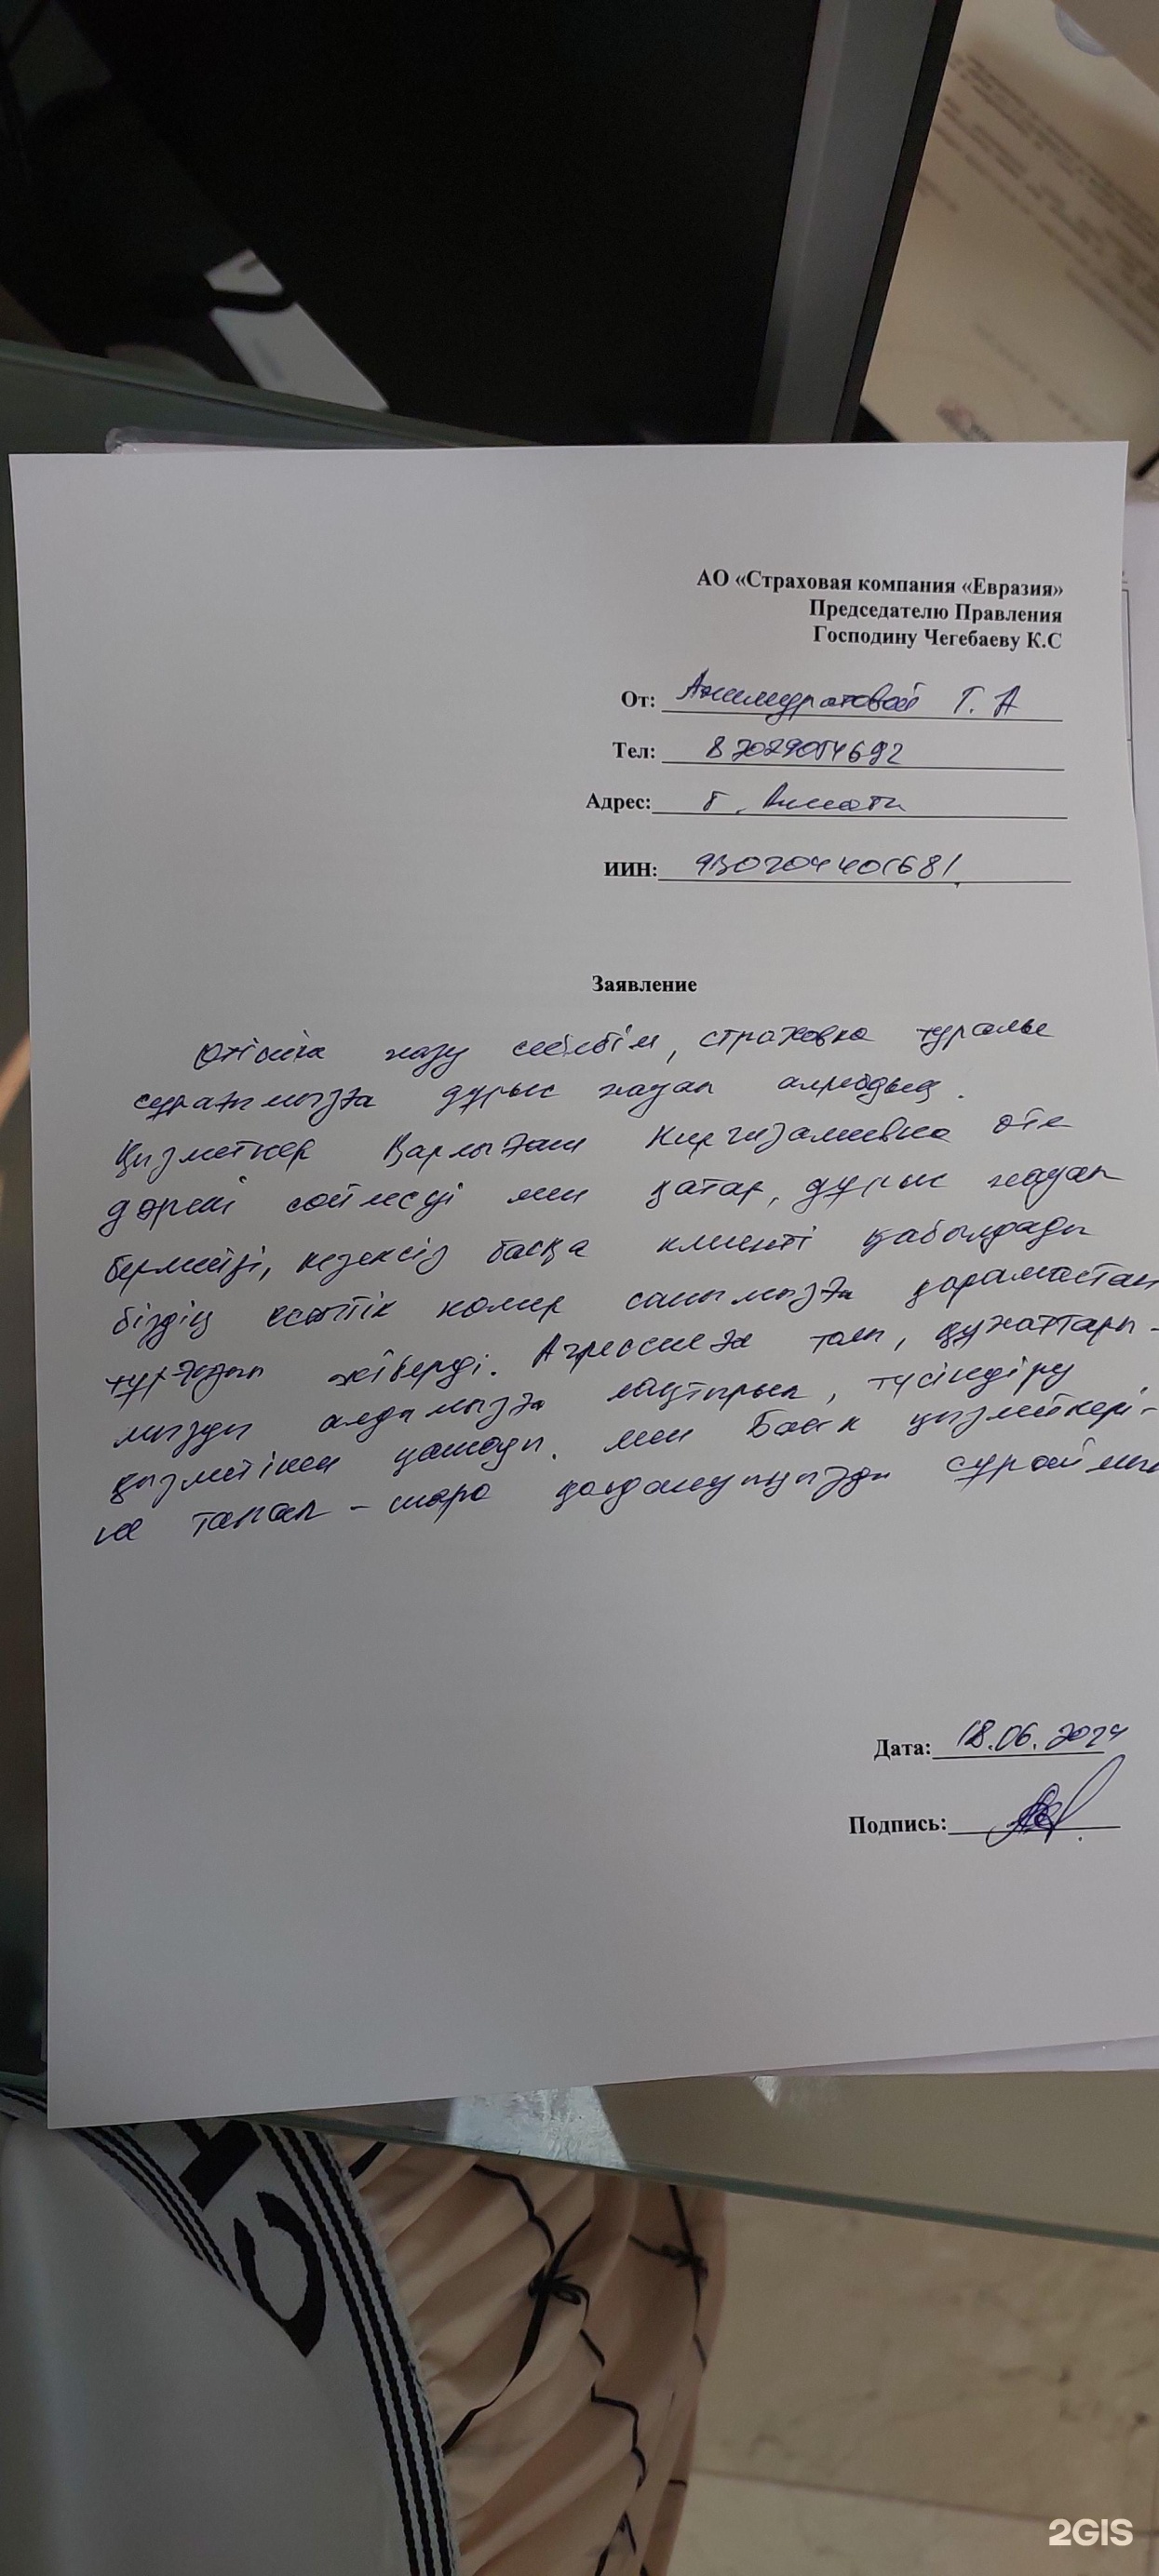 АО «Страховая компания «Евразия»
Председателю Правления
Господину Чегебаеву К.С
От: Ажимуратовой Г. А
Тел: 87029054692
Адрес: г. Алматы
ИИН: 930204401681
Заявление
Өтініш жазу себебім, страховка туралы
сұрағымызға дұрыс жауап алмадық.
Қызметкер Қарлығаш Киргизалиевна өте
дөрекі сөйлеуі мен қатар, дұрыс жауап
бермейді, кезексіз басқа клиенті қабылдады
біздің номер санымызға қарамастан
тұрғызып жіберді. Агрессияға толы, құжаттары-
мызды алдымызға лақтырып, түсіндіру
қызметінен қашады. мен Банк қызметкері-
не талап-шара қолдануыңызды сұраймын
Дата: 18.06.2024
Подпись:
2GIS